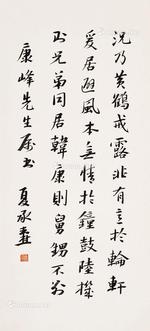 况乃黄鶴戒露非有意於輪軒
爰居避風本無情於鐘鼓陸機
則兄弟同居韓康則舅甥不别
康峰先生屬書 夏承燾